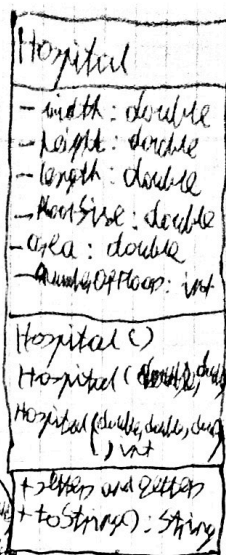 Hospital
- width : double
- height : double
- length : double
- floorSize : double
- area : double
- numberOfFloors : int
Hospital ()
Hospital (double, doub
Hospital (double, double, dou
, int
+ setters and getters
+ toString() : String